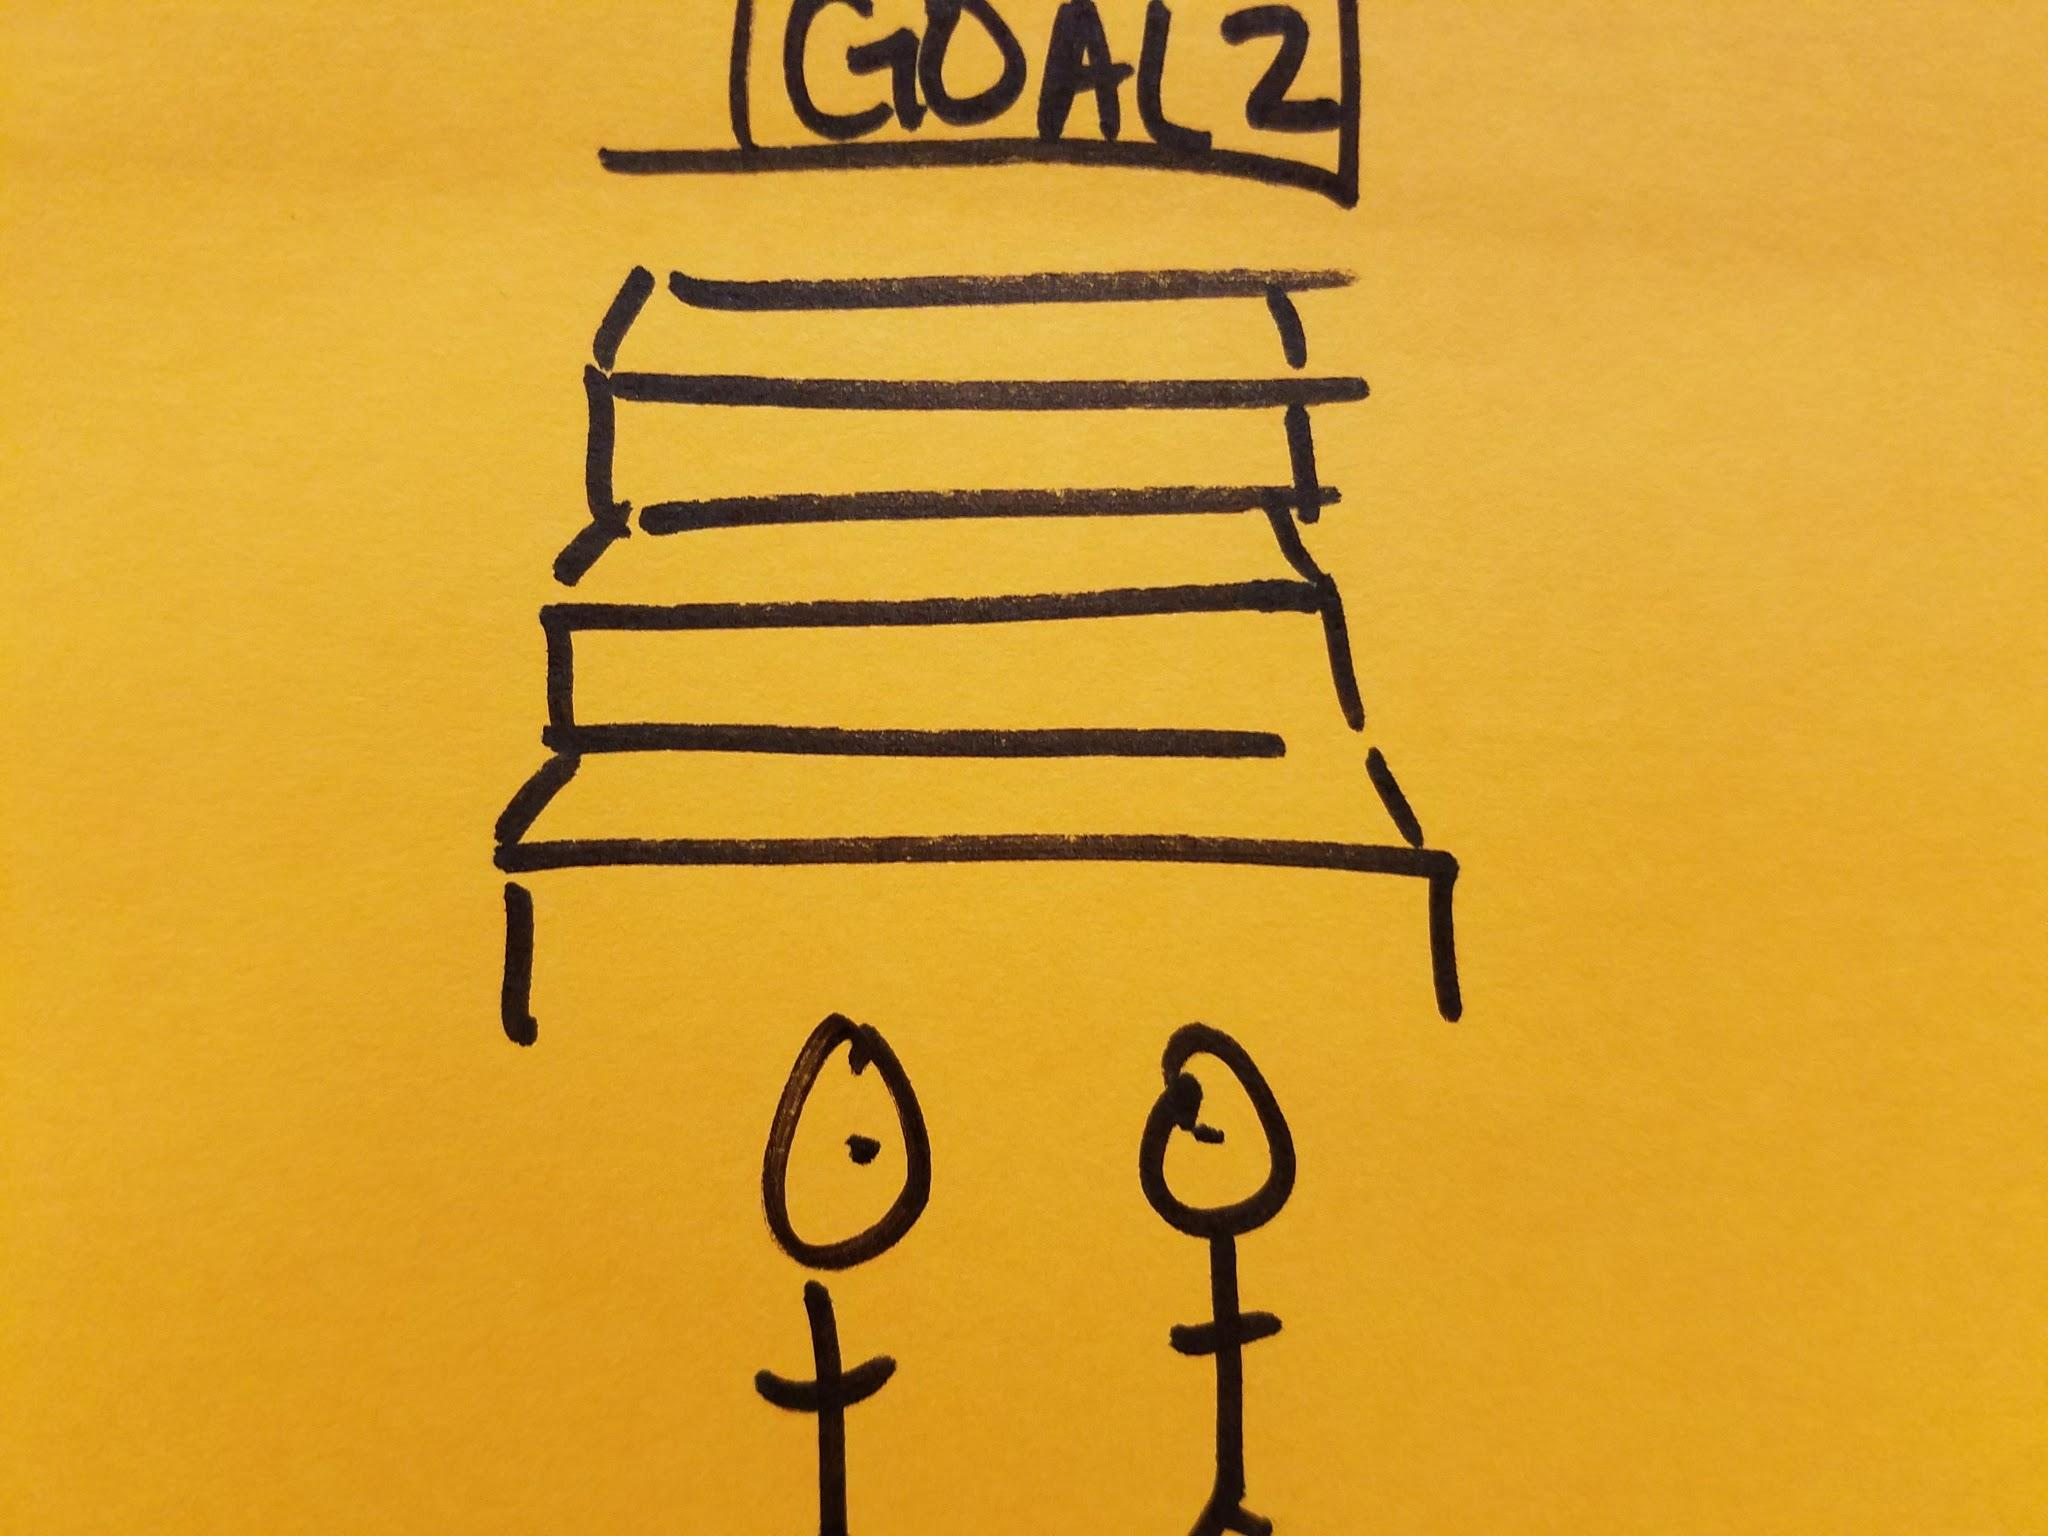 GOAL 2